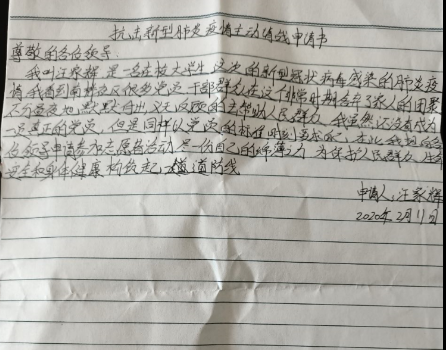 抗击新型肺炎疫情主动请战申请书
尊敬的各位领导:
我叫汪家辉 是一名在校大学生 这次的新型冠状病毒感染的肺炎疫
情 我看到南湖社区很多党员干部群众在这个非常时期舍弃了家人的团聚
不分昼夜地默默付出 义无反顾的去帮助人民群众 我虽然还没有成为
一名真正的党员 但是同样以党员的标准时刻要求自己 在此我向各
位领导申请参加志愿者活动 尽一份自己的绵薄之力 为保护人民群众生
安全和身体健康 构筑起一道道防线
申请人:汪家辉
2020年2月11日